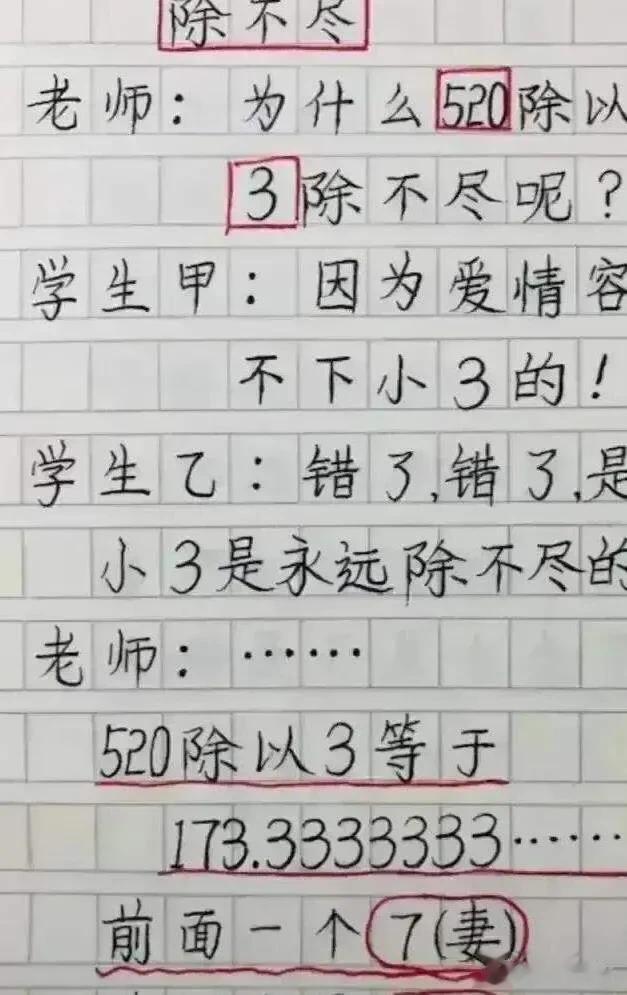 除不尽
老师：为什么520除以
3除不尽呢？
学生甲：因为爱情容
不下小3的！
学生乙：错了,错了,是
小3是永远除不尽的
老师：……
520除以3等于
173.3333333……
前面一个7(妻)